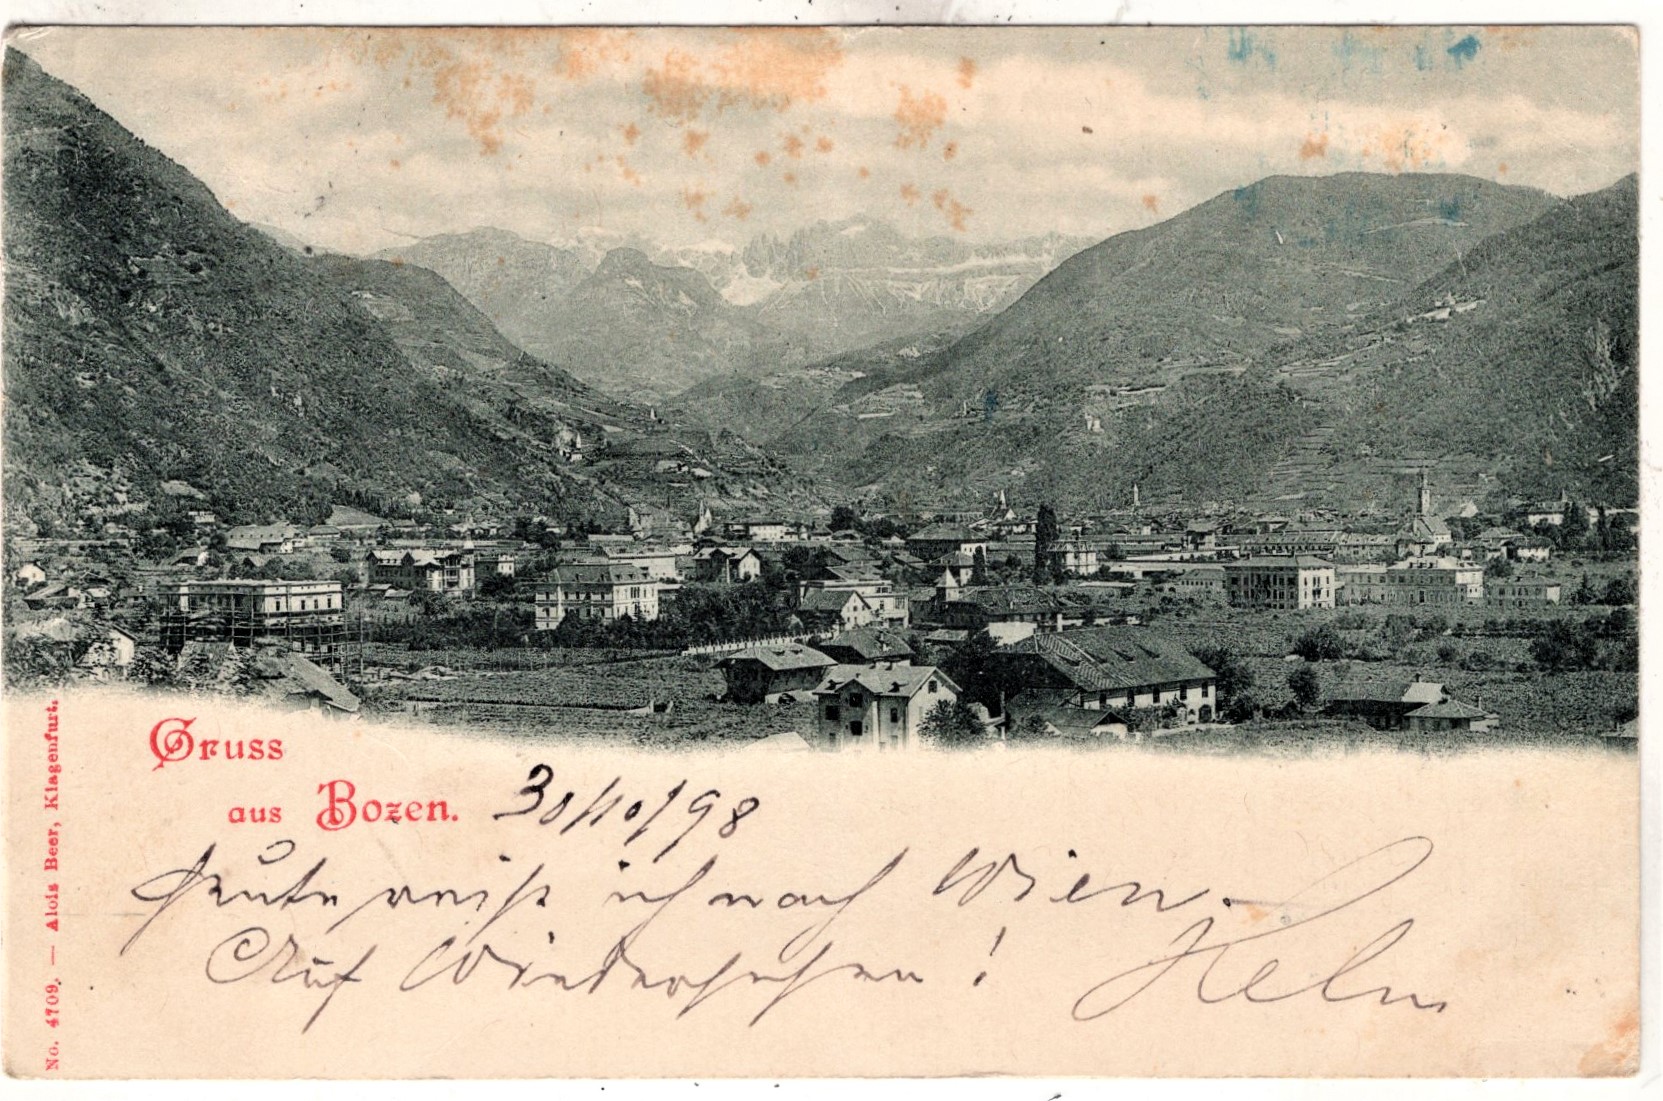 Gruss
aus Bozen.
30/10/98
Heute reise ich nach Wien.
Auf Wiedersehen!
No. 4709. — Alois Beer, Klagenfurt.